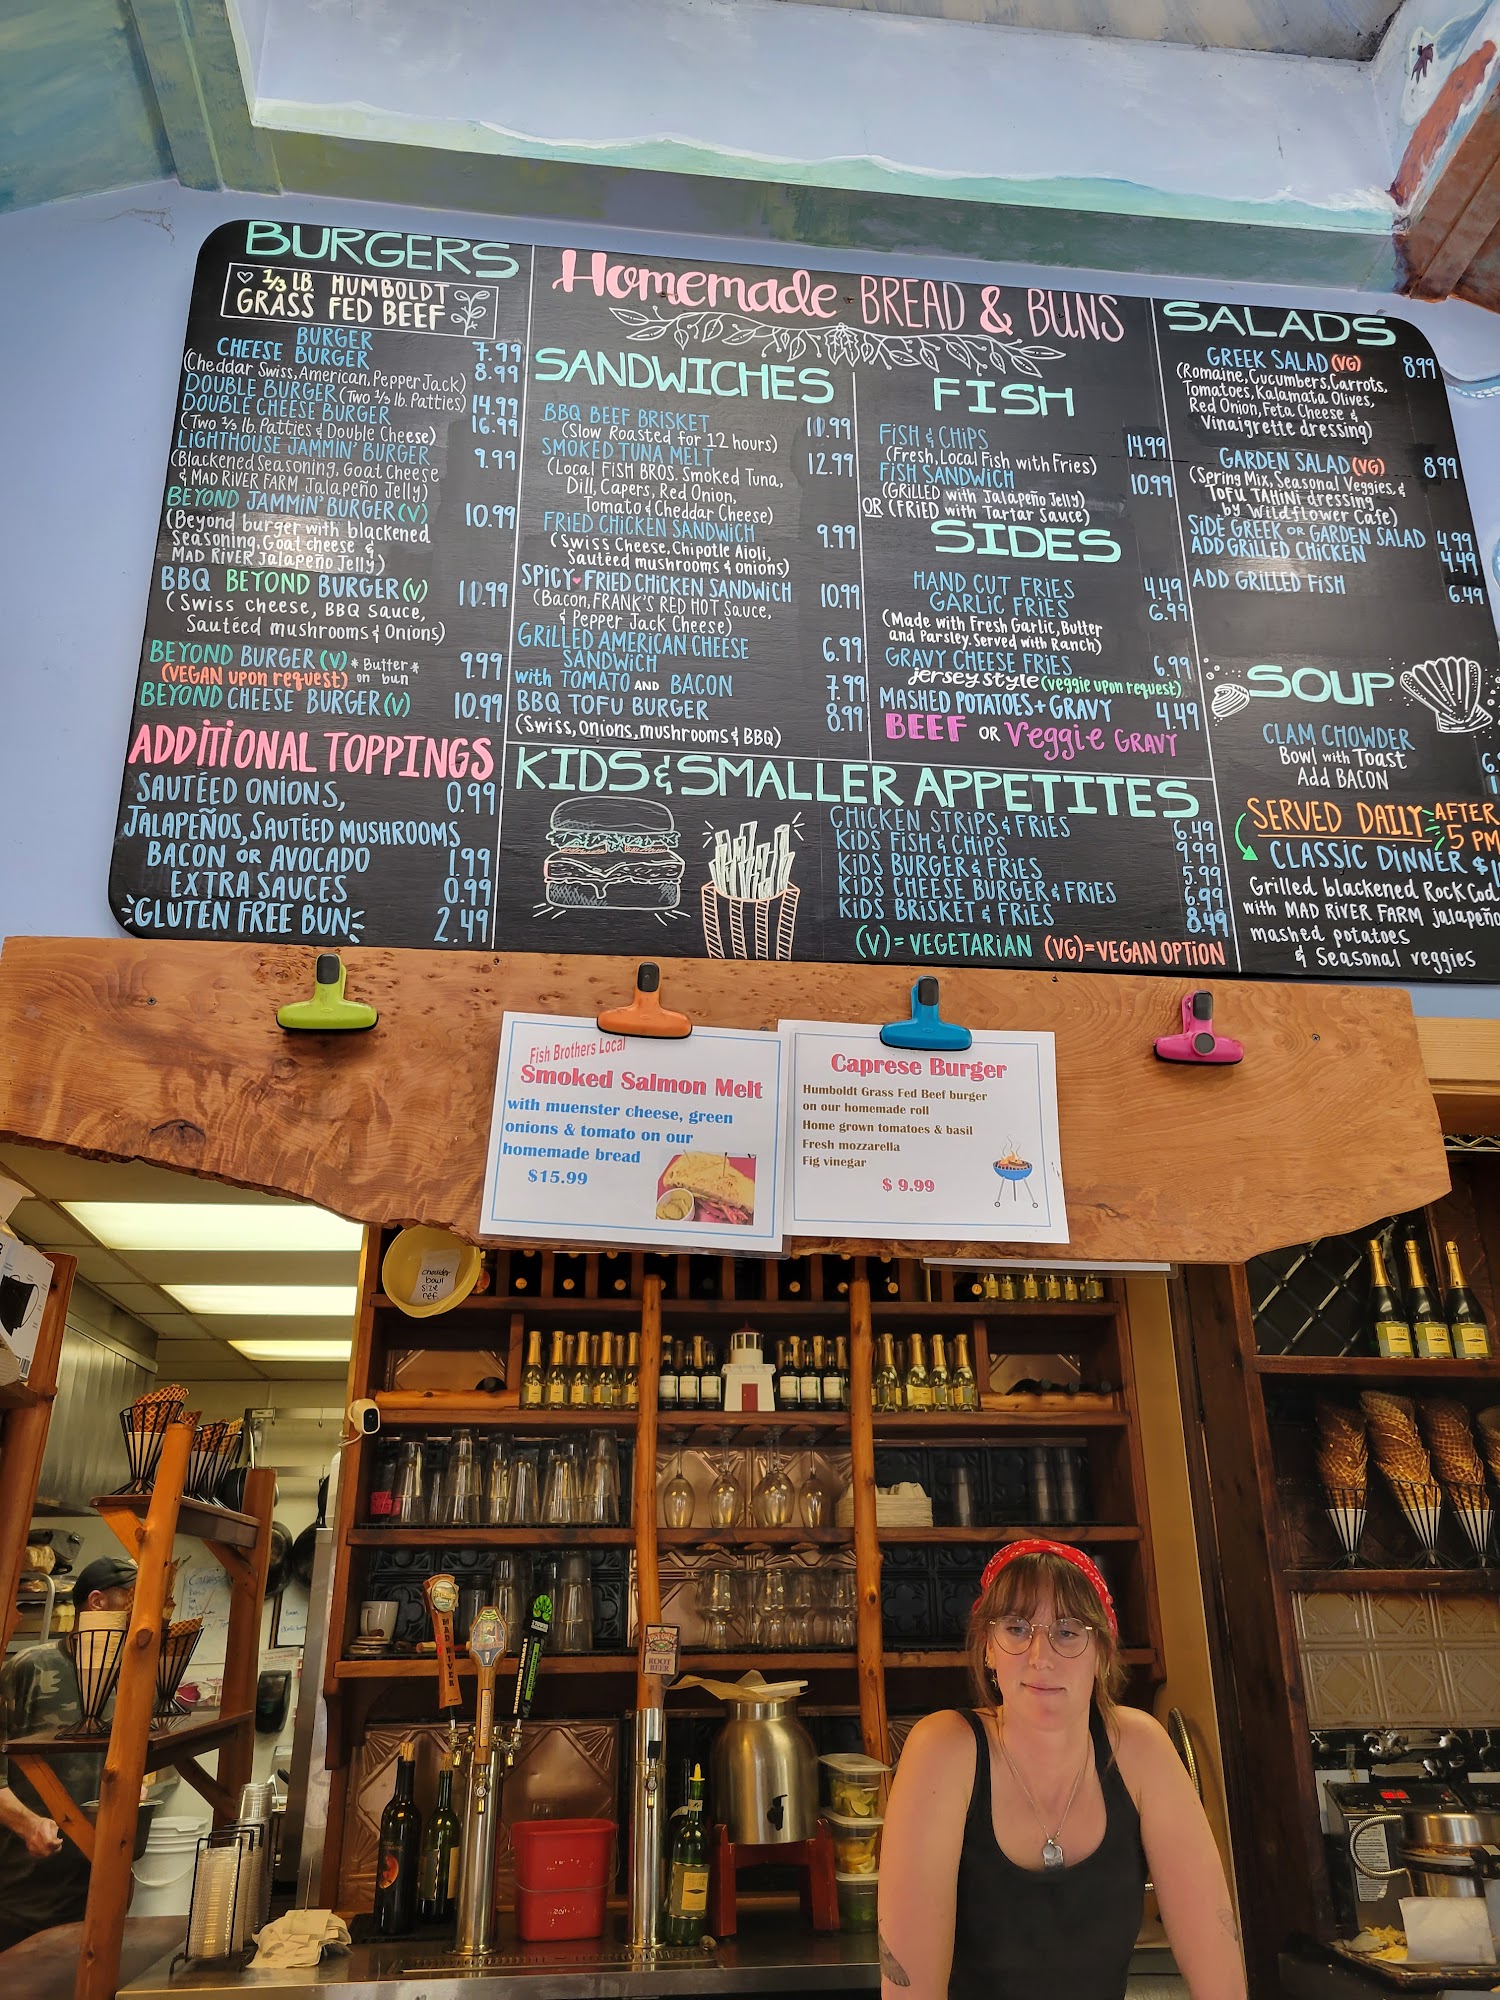 BURGERS
♡ 1/3 LB. HUMBOLDT
GRASS FED BEEF
BURGER 7.99
CHEESE BURGER 8.99
(Cheddar Swiss, American, Pepper Jack)
DOUBLE BURGER (Two 1/3 lb. Patties) 14.99
DOUBLE CHEESE BURGER 16.99
(Two 1/3 lb. Patties & Double Cheese)
LIGHTHOUSE JAMMIN' BURGER 9.99
(Blackened Seasoning, Goat Cheese
& MAD RIVER FARM Jalapeño Jelly)
BEYOND JAMMIN' BURGER (V) 10.99
(Beyond burger with blackened
Seasoning, Goat cheese &
MAD RIVER Jalapeño Jelly)
BBQ BEYOND BURGER (V) 10.99
(Swiss cheese, BBQ sauce,
Sautéed mushrooms & Onions)
BEYOND BURGER (V) *Butter* 9.99
(VEGAN upon request) on bun
BEYOND CHEESE BURGER (V) 10.99
ADDITIONAL TOPPINGS
SAUTÉED ONIONS, 0.99
JALAPEÑOS, SAUTÉED MUSHROOMS
BACON OR AVOCADO 1.99
EXTRA SAUCES 0.99
GLUTEN FREE BUN 2.49
Homemade BREAD & BUNS
SANDWICHES
BBQ BEEF BRISKET 10.99
(Slow Roasted for 12 hours)
SMOKED TUNA MELT 12.99
(Local FISH BROS. Smoked Tuna,
Dill, Capers, Red Onion,
Tomato & Cheddar Cheese)
FRIED CHICKEN SANDWICH 9.99
(Swiss Cheese, Chipotle Aioli,
Sautéed mushrooms & onions)
SPICY ♥ FRIED CHICKEN SANDWICH 10.99
(Bacon, FRANK'S RED HOT Sauce,
& Pepper Jack Cheese)
GRILLED AMERICAN CHEESE 6.99
SANDWICH
with TOMATO AND BACON 7.99
BBQ TOFU BURGER 8.99
(Swiss, Onions, mushrooms & BBQ)
FISH
FISH & CHIPS 14.99
(Fresh, Local Fish with Fries)
FISH SANDWICH 10.99
(GRILLED with Jalapeño Jelly)
OR (FRIED with Tartar Sauce)
SIDES
HAND CUT FRIES 4.49
GARLIC FRIES 6.99
(Made with Fresh Garlic, Butter
and Parsley. Served with Ranch)
GRAVY CHEESE FRIES 6.99
Jersey Style (veggie upon request)
MASHED POTATOES + GRAVY 4.49
BEEF OR Veggie GRAVY
KIDS & SMALLER APPETITES
CHICKEN STRIPS & FRIES 6.49
KIDS FISH & CHIPS 9.99
KIDS BURGER & FRIES 5.99
KIDS CHEESE BURGER & FRIES 6.99
KIDS BRISKET & FRIES 8.49
(V) = VEGETARIAN (VG) = VEGAN OPTION
SALADS
GREEK SALAD (VG) 8.99
(Romaine, Cucumbers, Carrots,
Tomatoes, Kalamata Olives,
Red Onion, Feta Cheese &
Vinaigrette dressing)
GARDEN SALAD (VG) 8.99
(Spring Mix, Seasonal Veggies, &
TOFU TAHINI dressing
by Wildflower Cafe)
SIDE GREEK OR GARDEN SALAD 4.99
ADD GRILLED CHICKEN 4.49
ADD GRILLED FISH 6.49
SOUP
CLAM CHOWDER
Bowl with Toast 6.
Add BACON
SERVED DAILY AFTER
5 PM
CLASSIC DINNER $1
Grilled blackened Rock Cod
with MAD RIVER FARM jalapeño
mashed potatoes
& Seasonal veggies
Fish Brothers Local
Smoked Salmon Melt
with muenster cheese, green
onions & tomato on our
homemade bread
$15.99
Caprese Burger
Humboldt Grass Fed Beef burger
on our homemade roll
Home grown tomatoes & basil
Fresh mozzarella
Fig vinegar
$ 9.99
chowder
bowl
size
ref.
MAD RIVER
ROOT
BEER